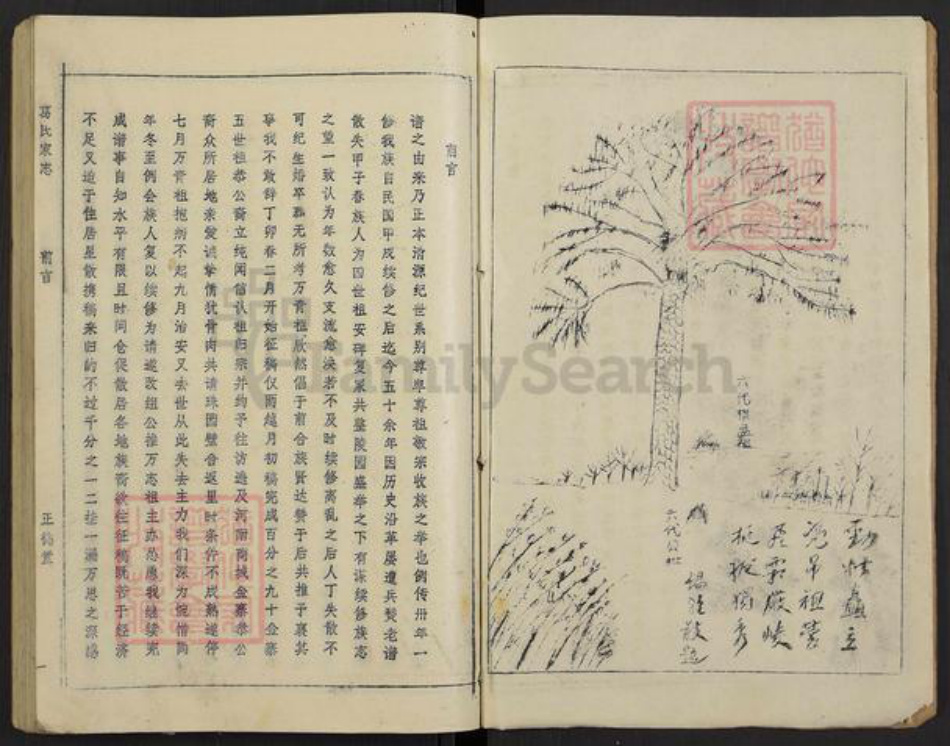 前言
谱之由来乃正本清源纪世系别尊卑尊祖敬宗收族之举也例传卅年一
修我族自民国甲戍续修之后迄今五十余年因历史沿革屡遭兵燹老谱
散失甲子春族人为四世祖安碑复派共鉴陵园盛举之下有谋续修族志
之望一致认为年数愈久支流愈泱若不及时续修离乱之后人丁失散不
可纪生婚卒葬无所考万青祖欣然倡于前合族贤达赞于后共推予襄其
事我不敢辞丁卯春二月开始征稿仅两越月初稿完成百分之九十金寨
五世祖恭公裔立纯闻信认祖归宗并约予往访遂及河南商城金寨恭公
裔众所居地亲爱诚挚情犹骨肉共请珠园壁合返里时条件不成熟遂停
七月万青祖抱病不起九月治安又去世从此失去主力我们深为惋惜尚
年冬至例会族人复以续修为请遂改组公推万志祖主办怂恿我继续完
成谱事自知水平有限且时间仓促散居各地族裔欲往征稿既苦于经济
不足又迫于住居星散携稿来归的不过千分之一二挂一漏万思之深感
葛氏家志
前言
正伦堂
一
FamilySearch
六代祖墓
劲松矗立
凭吊祖茔
挺拔独秀
六代公社